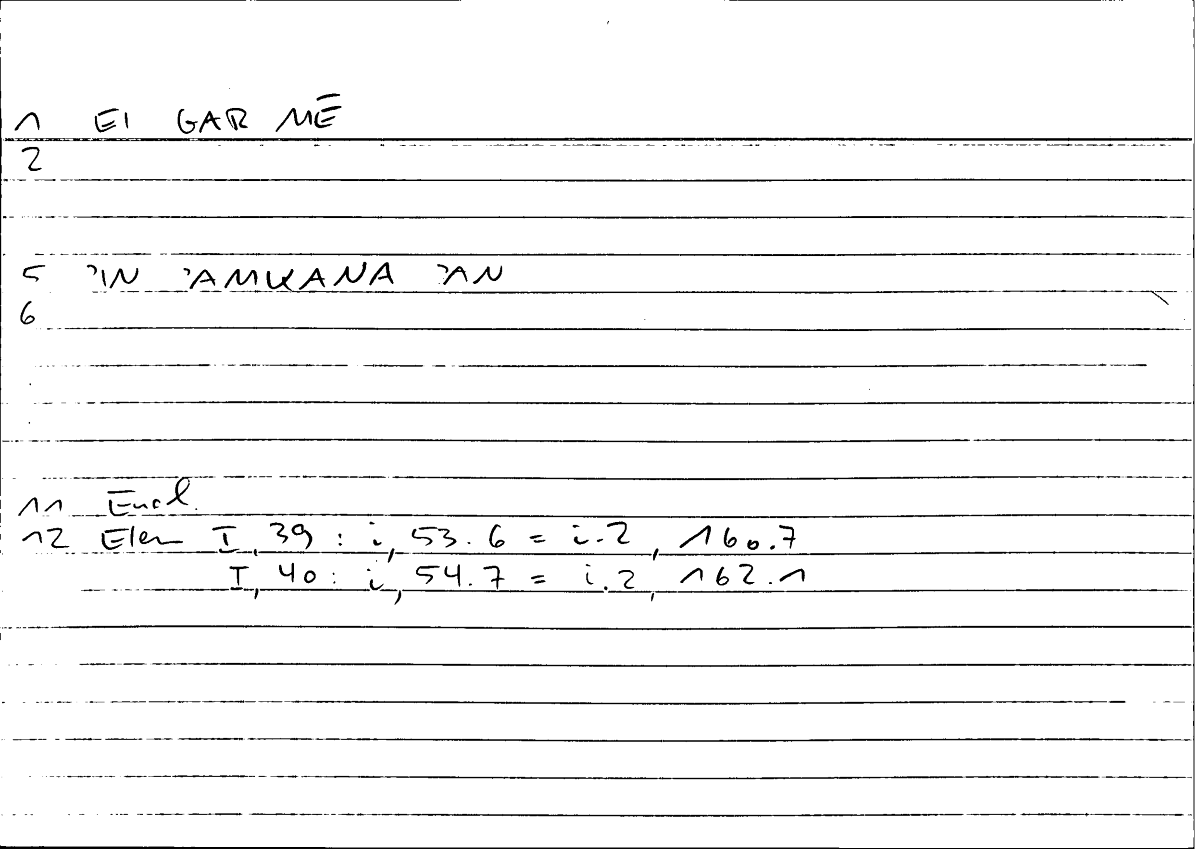 1 EI GAR MĒ
2
5 ʾIN ʾAMKANA ʾAN
6
11 Eucl.
12 Elem I, 39 : i, 53.6 = i.2, 160.7
I, 40 : i, 54.7 = i.2, 162.1